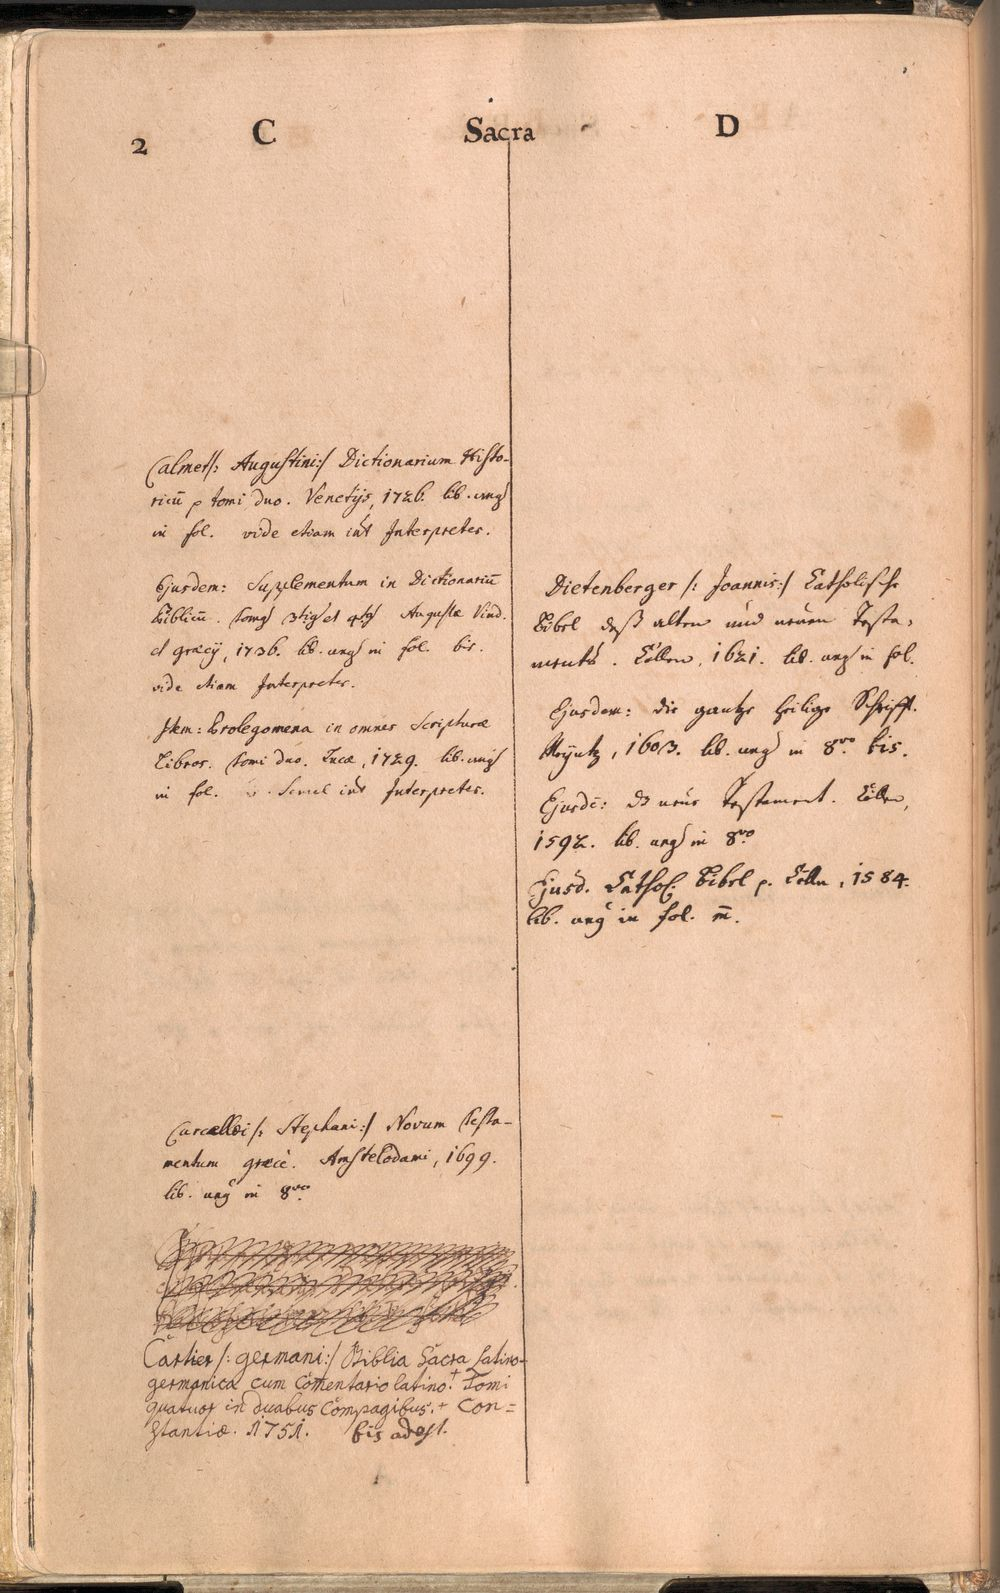 2 C Sacra D
Calmet /: Augustini :/ Dictionarium Histo-
ricū p tomi duo. Venetijs, 1726. lib. ung9
in fol. vide etiam int Interpretes.
Ejusdem: Supplementum in Dictionariū
Biblicū. tom9 3tig et 4t9 Augustæ Vind.
et græcij, 1736. lib. ung9 in fol. bis.
vide etiam Interpretes.
Item: Prolegomena in omnes Scripturæ
Libros. tomi duo. Lucæ, 1729. lib. ung9
in fol. Semel int Interpretes.
Curcellæi /: Stephani :/ Novum Testa-
mentum græcè. Amstelodami, 1699.
lib. ung9 in 8vo.
Cartier /: germani :/ Biblia Sacra latino-
germanica cum Com̄entario latino. + Tomi
quatuor in duabus Compagibus. + Con=
stantiæ. 1751. bis adest.
Dietenberger /: Joannis :/ Catholische
Bibel deß alten und neuen Testa-
ments. Cöllen, 1621. lib. ung9 in fol.
Ejusdem: die gantze heilige Schrifft.
Mäyntz, 1603. lib. ung9 in 8vo. bis.
Ejusdē: dz neue Testament. Cöllen,
1592. lib. ung9 in 8vo
Ejusd. Cathol. Bibel p. Cölln, 1584.
lib. ung9 in fol. m̄.